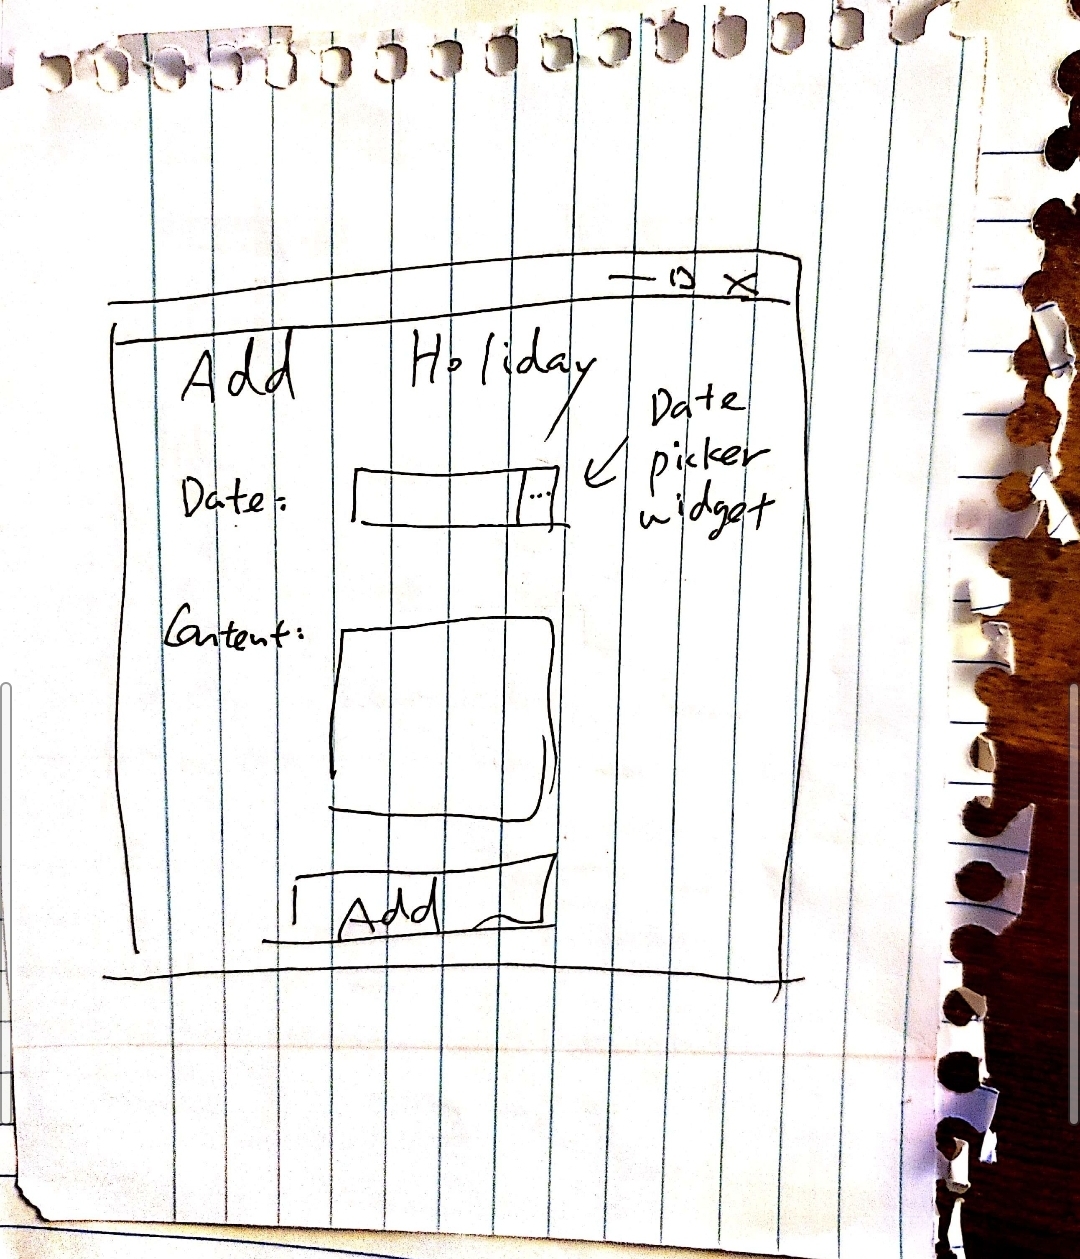 Add Holiday
Date:
...
Date
picker
widget
Content:
Add